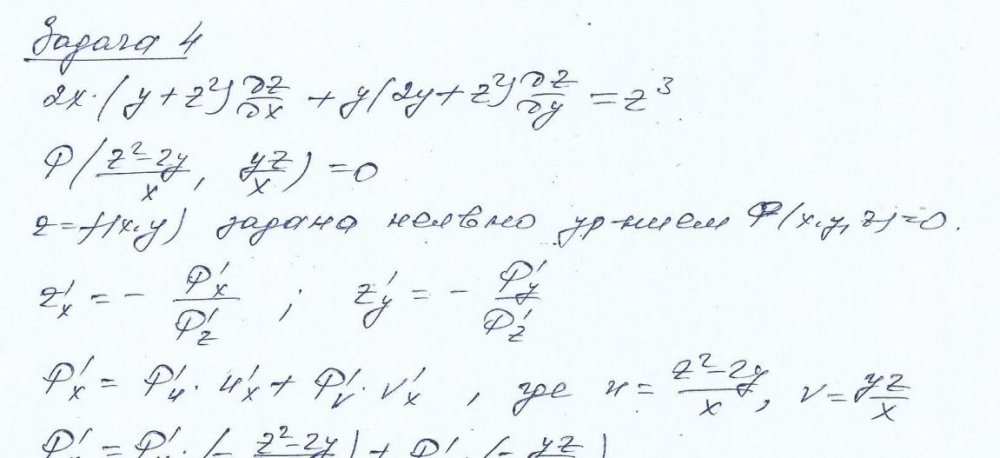 Задача 4
2x·(y+z²)∂z/∂x + y(2y+z²)∂z/∂y = z³
Φ((z²-2y)/x, yz/x) = 0
z=f(x,y) задана неявно ур-нием Φ(x,y,z)=0.
z'ₓ = - Φ'ₓ/Φ'z ; z'y = - Φ'y/Φ'z
Φ'ₓ = Φ'u · u'ₓ + Φ'v · v'ₓ , где u = (z²-2y)/x, v = yz/x